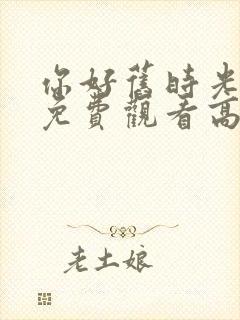 你好舊時光
免費觀看高
老土娘